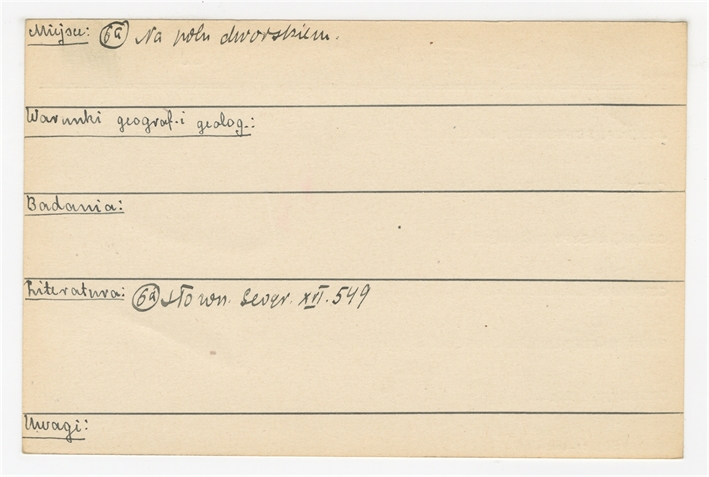 Miejsce: 6a Na polu dworskiem.
Warunki geograf. i geolog.:
Badania:
Literatura: 6a Słown. Geogr. XII. 549
Uwagi: